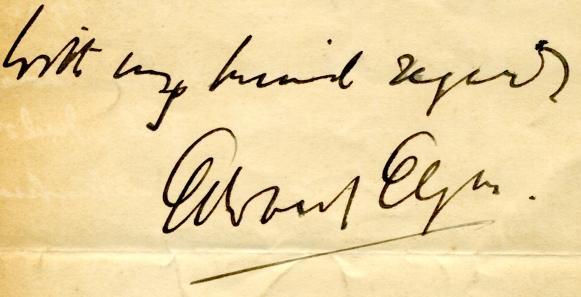 With my kind regards
Edward Elgar.